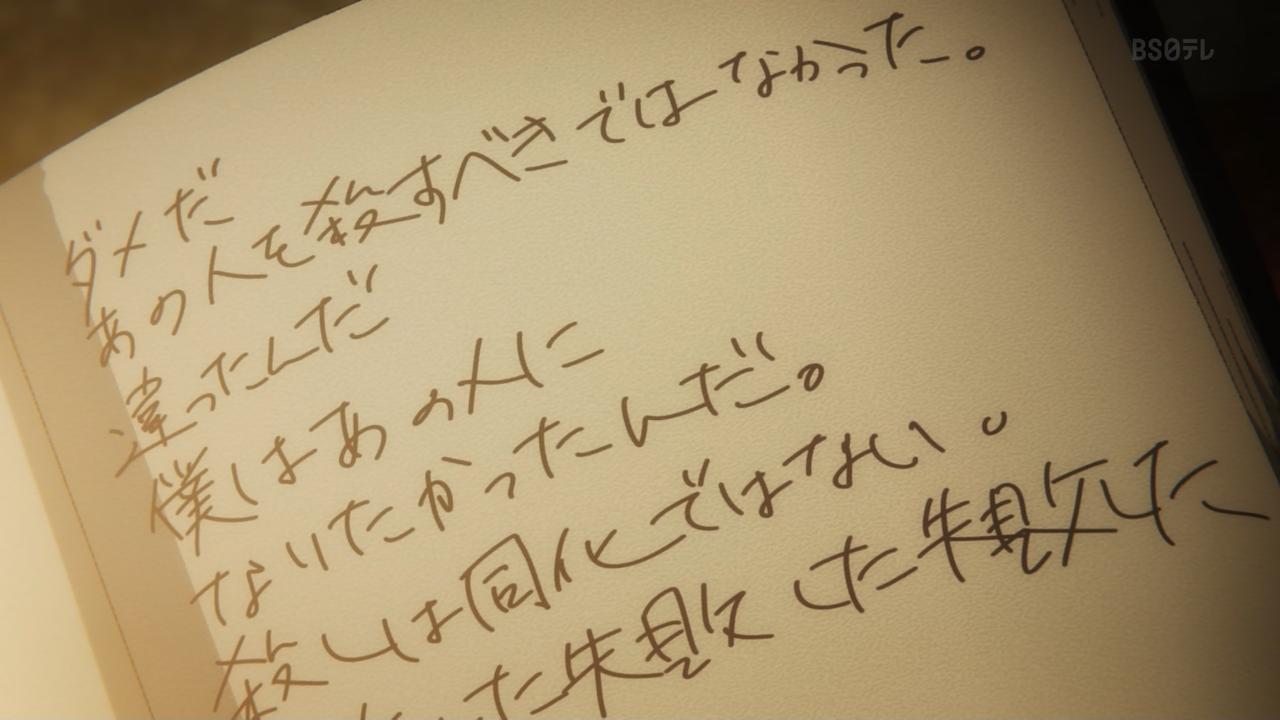 BS日テレ
ダメだ
あの人を殺すべきではなかった。
違ったんだ
僕はあの人に
ないたかったんだ。
殺しは同化ではない。
た失敗した失敗した